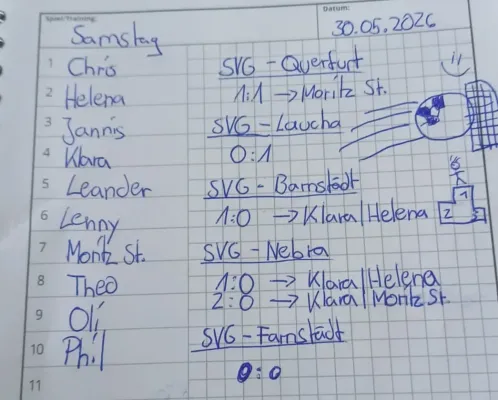 Spiel/Training: Datum:
Samstag 30.05.2026
1 Chris
2 Helena
3 Jannis
4 Klara
5 Leander
6 Lenny
7 Moritz St.
8 Theo
9 Oli
10 Phil
11
SVG - Querfurt
1:1 → Moritz St.
SVG - Laucha
0:1
SVG - Barnstädt
1:0 → Klara/Helena
SVG - Nebra
1:0 → Klara/Helena
2:0 → Klara/Moritz St.
SVG - Farnstädt
0:0
1
2 3